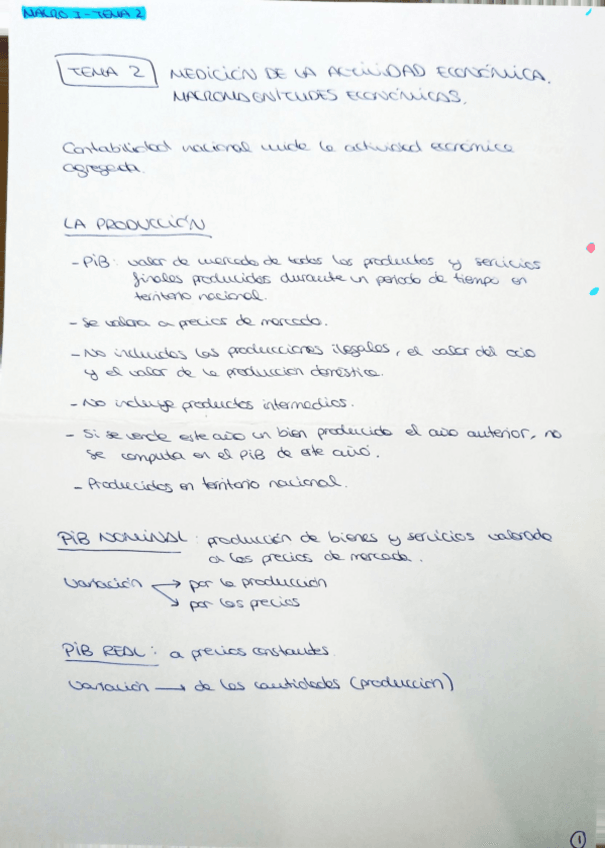 MACRO I - TEMA 2
TEMA 2 MEDICIÓN DE LA ACTIVIDAD ECONÓMICA.
MACROMAGNITUDES ECONÓMICAS.
Contabilidad nacional mide la actividad económica
agregada.
LA PRODUCCIÓN
- PiB: valor de mercado de todos los productos y servicios
finales producidos durante un periodo de tiempo en
territorio nacional.
- Se valora a precios de mercado.
- No incluidos las producciones ilegales, el valor del ocio
y el valor de la produccion doméstica.
- No incluye productos intermedios.
- Si se vende este año un bien producido el año anterior, no
se computa en el PiB de este año.
- Producidos en territorio nacional.
PiB NOMINAL: producción de bienes y servicios valorado
a los precios de mercado.
Variación → por la producción
↘ por los precios
PiB REAL: a precios constantes.
Variación → de las cantidades (producción)
1